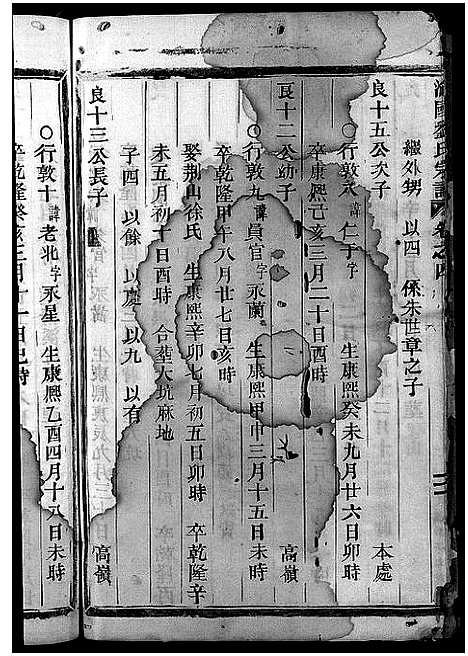 氏宗譜 卷之四
繼外甥 以四 係朱世章之子
良十五公次子 本處
○行敦 諱仁 字 生康熙癸未九月廿六日卯時
卒康熙己亥三月二十日酉時
良十二公幼子 高嶺
○行敦九 諱員官 字永蘭 生康熙甲申三月十五日未時
卒乾隆甲午八月廿七日亥時
娶荆山徐氏 生康熙辛卯七月初五日卯時 卒乾隆辛
未五月初十日酉時 合葬大坑麻地
子四 以餘 以慶 以九 以有
良十三公長子 高嶺
○行敦十 諱老北 字永星 生康熙乙酉四月十八日未時
卒乾隆癸亥三月十一日巳時